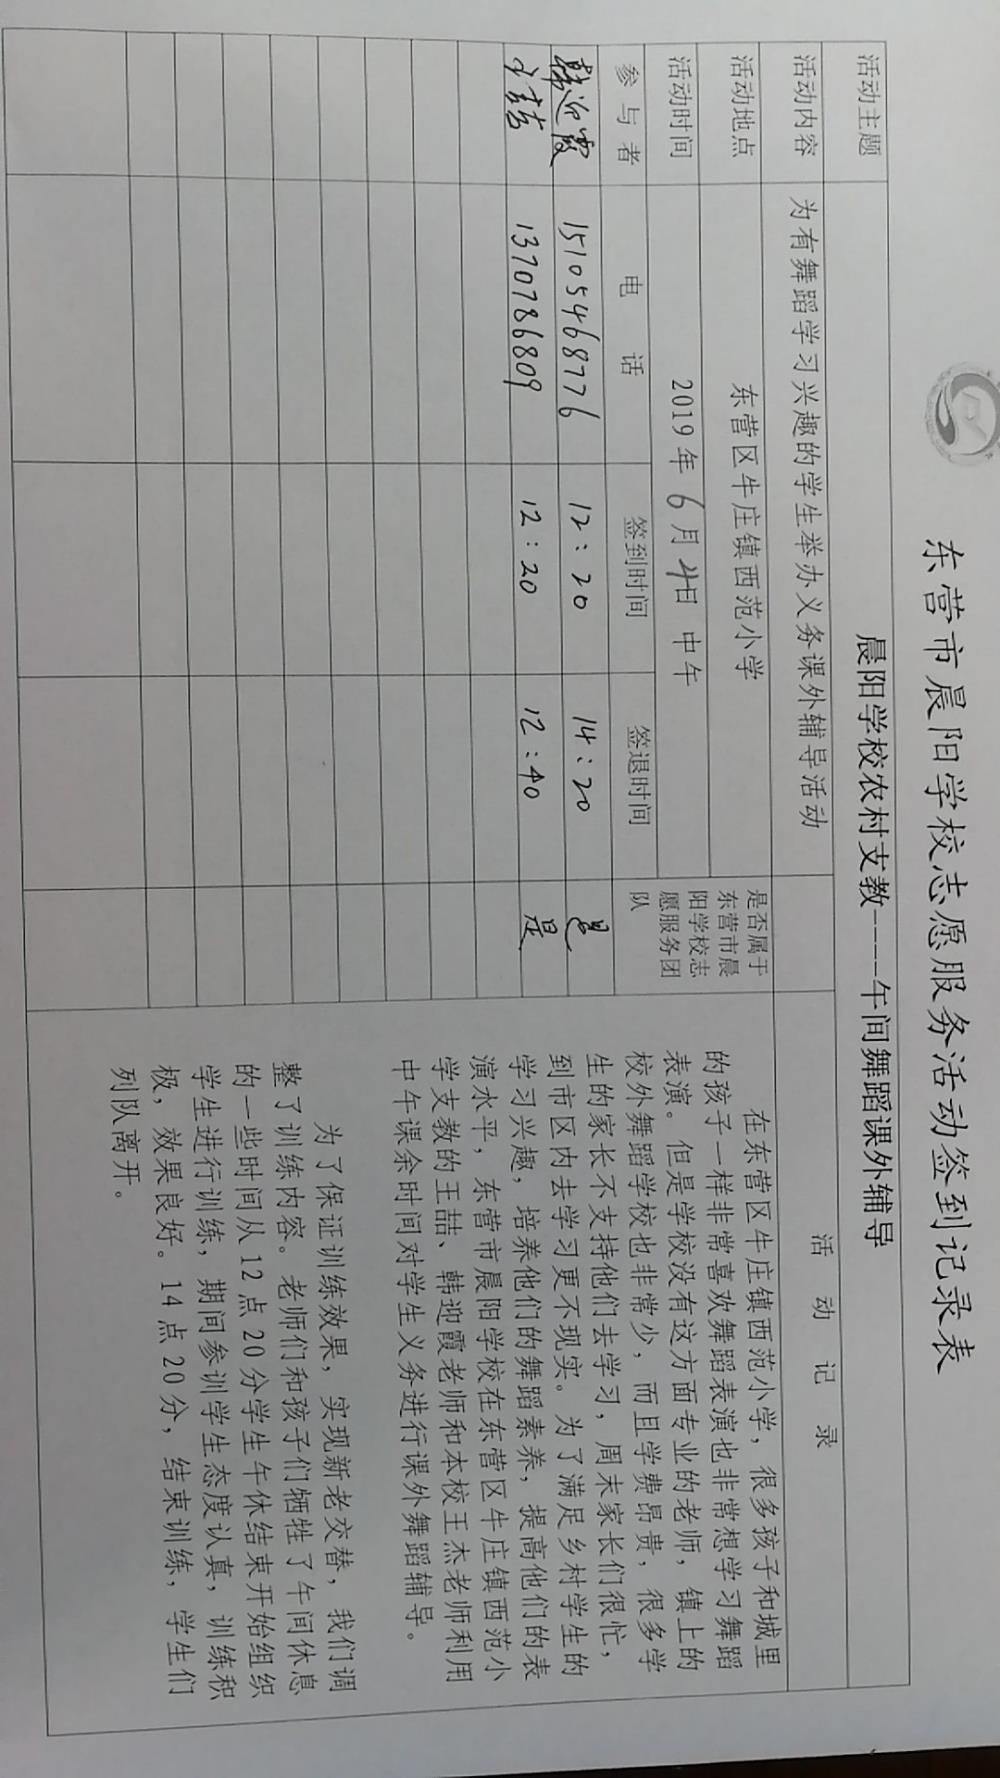 东营市晨阳学校志愿服务活动签到记录表
活动主题 晨阳学校农村支教----午间舞蹈课外辅导
活动内容 为有舞蹈学习兴趣的学生举办义务课外辅导活动
活动地点 东营区牛庄镇西范小学
活动时间 2019年6月4日 中午
是否属于
东营市晨
阳学校志
愿服务团
队
参与者 电 话 签到时间 签退时间
韩迎霞 15105468776 12:20 14:20 是
王喆 1370786809 12:20 12:40 是
活 动 记 录
在东营区牛庄镇西范小学，很多孩子和城里
的孩子一样非常喜欢舞蹈表演也非常想学习舞蹈
表演。但是学校没有这方面专业的老师，镇上的
校外舞蹈学校也非常少，而且学费昂贵，很多学
生的家长不支持他们去学习，周末家长们很忙，
到市区内去学习更不现实。为了满足乡村学生的
学习兴趣，培养他们的舞蹈素养，提高他们的表
演水平，东营市晨阳学校在东营区牛庄镇西范小
学支教的王喆、韩迎霞老师和本校王杰老师利用
中午课余时间对学生义务进行课外舞蹈辅导。
为了保证训练效果，实现新老交替，我们调
整了训练内容。老师们和孩子们牺牲了午间休息
的一些时间从12点20分学生午休结束开始组织
学生进行训练，期间参训学生态度认真，训练积
极，效果良好。14点20分，结束训练，学生们
列队离开。